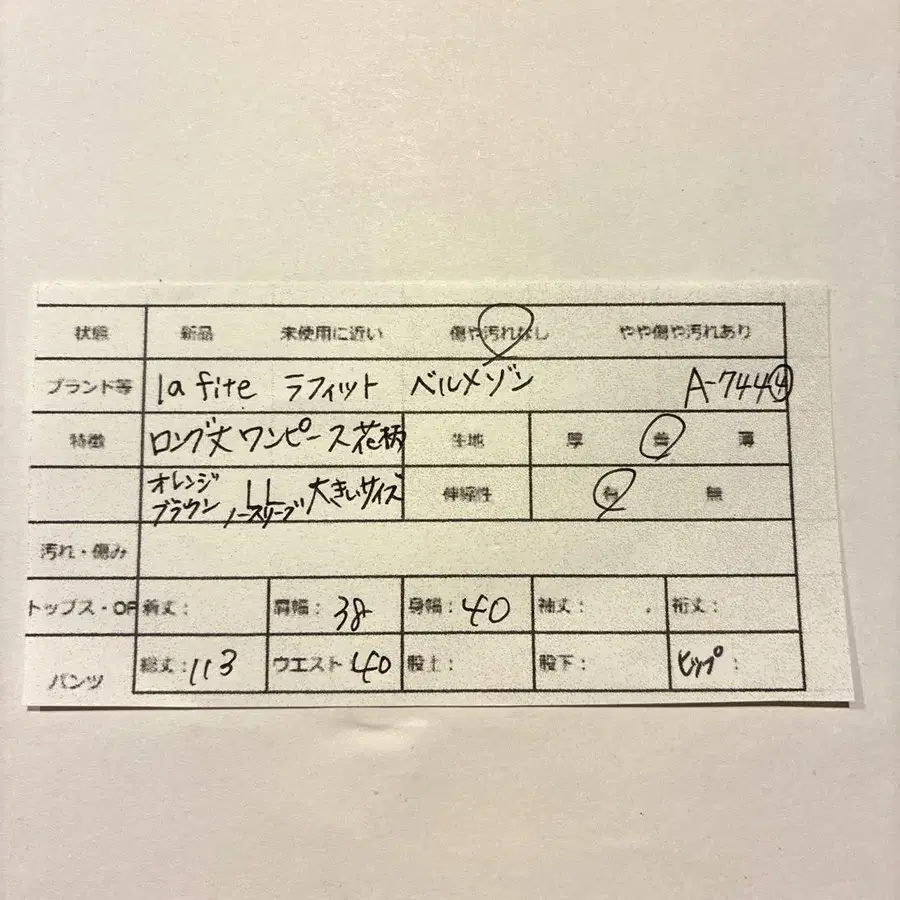 状態 新品 未使用に近い 傷や汚れなし やや傷や汚れあり
ブランド等 la fite ラフィット ベルメゾン A-7444
特徴 ロング丈ワンピース花柄 生地 厚 普 薄
オレンジ ブラウン LL ノースリーブ 大きいサイズ 伸縮性 有 無
汚れ・傷み
トップス・OP 着丈: 肩幅: 38 身幅: 40 袖丈: 裄丈:
パンツ 総丈: 113 ウエスト 40 股上: 股下: ヒップ: